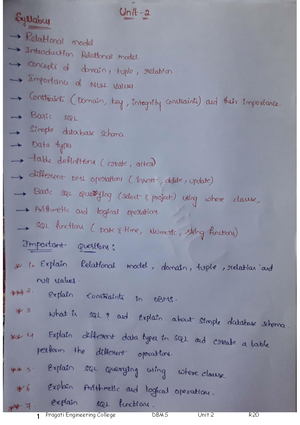 Unit-2
Syllabus
→ Relational model
→ Introduction Relational model.
→ concepts of domain, tuple, relation
→ Importance of NULL values
→ Constraints (Domain, key, integrity constraints) and their importance.
→ Basic SQL
→ Simple database schema
→ Data types
→ table definitions (create, alter)
→ different DML operations (insert, delete, update)
→ Basic SQL Querying (select & project) using where clause.
→ Arithmetic and logical operations
→ SQL functions (Date & time, Numeric, string functions)
Important Questions:
1. Explain Relational model, domain, tuple, relation and
null values.
2. Explain constraints in DBMS.
3 what is SQL & and explain about simple database schema
4 Explain different data types in SQL and create a table
perform the different operations.
5. Explain SQL querying using where clause.
6 Explain Arithmetic and logical operation.
7 Explain SQL functions.
1 Pragati Engineering College DBMS Unit 2 R20